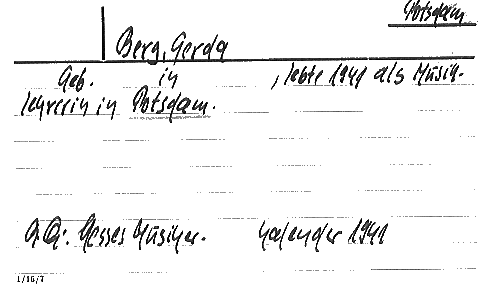 Potsdam
Berg, Gerda
Geb. in , lebte 1941 als Musik-
lehrerin in Potsdam.
a.a: Hesses Musiker- Kalender 1941
1/16/7